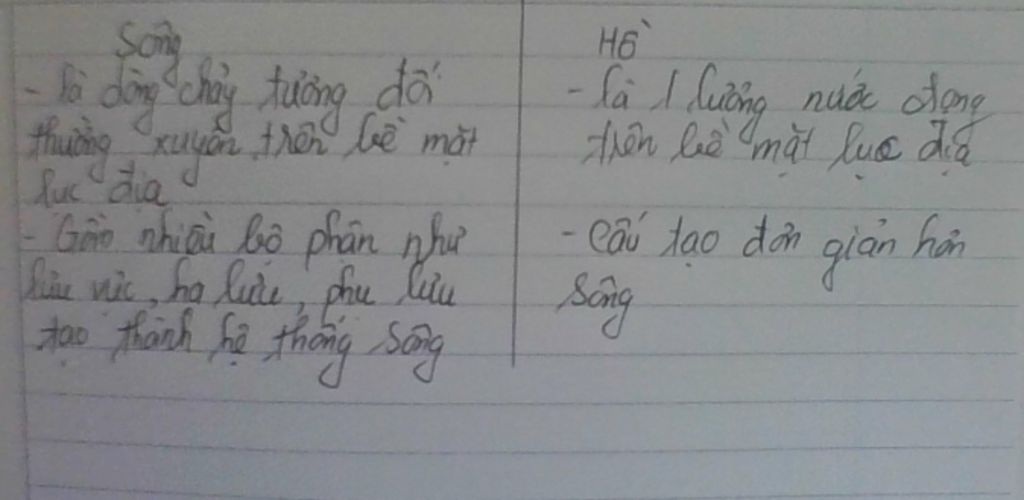 Sông
- là dòng chảy tương đối
thường xuyên trên bề mặt
lục địa
- Gồm nhiều bộ phận như
lưu vực, hạ lưu, phụ lưu
tạo thành hệ thống sông
Hồ
- là 1 lượng nước đọng
trên bề mặt lục địa
- Cấu tạo đơn giản hơn
sông